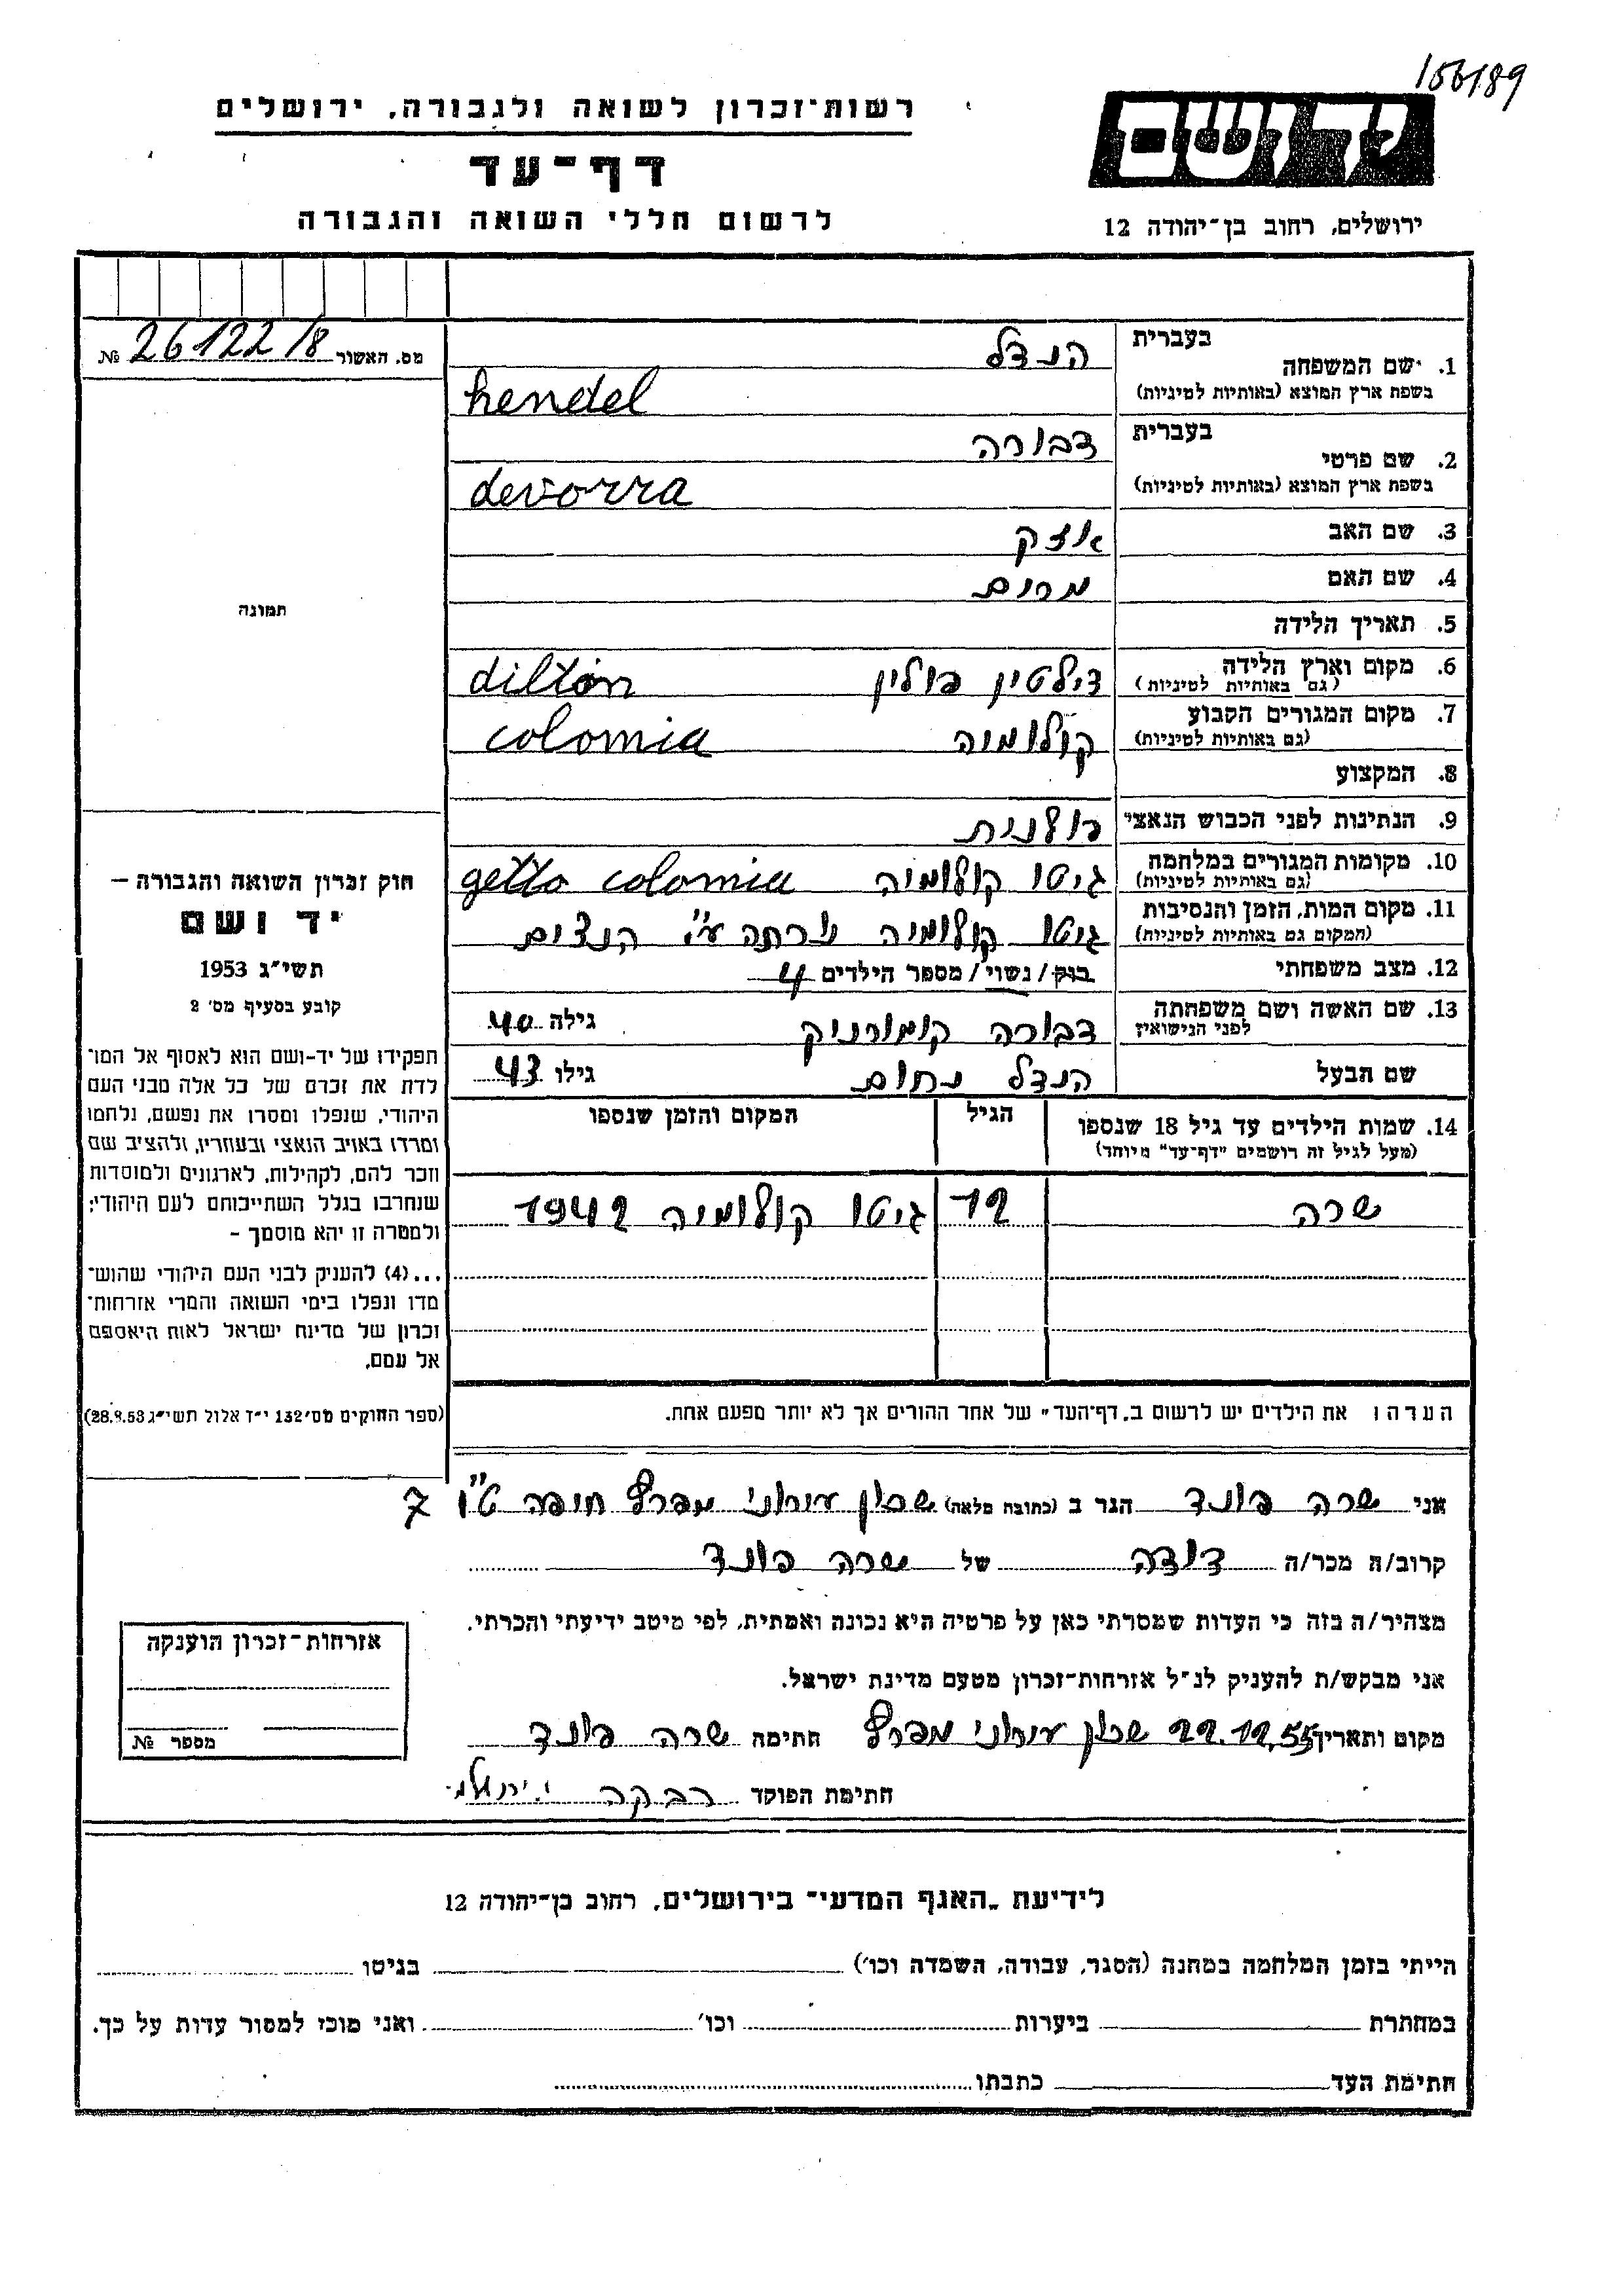 156189
רשות־זכרון לשואה ולגבורה, ירושלים
דף־עד
לרשום חללי השואה והגבורה
יד ושם
ירושלים, רחוב בן־יהודה 12
מס. האשור 26122/8 №
בעברית
1. שם המשפחה הנדל
בשפת ארץ המוצא (באותיות לטיניות) hendel
בעברית
2. שם פרטי דבורה
בשפת ארץ המוצא (באותיות לטיניות) devorra
3. שם האב איזק
4. שם האם מרים
5. תאריך הלידה
6. מקום וארץ הלידה דילטין פולין diltin
(גם באותיות לטיניות)
7. מקום המגורים הקבוע קולומיה colomia
(גם באותיות לטיניות)
8. המקצוע
9. הנתינות לפני הכבוש הנאצי פולנית
10. מקומות המגורים במלחמה גיטו קולומיה getto colomia
(גם באותיות לטיניות)
11. מקום המות, הזמן והנסיבות גיטו קולומיה נורתה ע"י הנצים
(המקום גם באותיות לטיניות)
12. מצב משפחתי רווק/נשוי/מספר הילדים 4
13. שם האשה ושם משפחתה דבורה קומורניק גילה 40
לפני הנישואין
שם הבעל הנדל נחום גילו 43
14. שמות הילדים עד גיל 18 שנספו הגיל המקום והזמן שנספו
(מעל לגיל זה רושמים "דף־עד" מיוחד)
שרה 12 גיטו קולומיה 1942
הערה: את הילדים יש לרשום ב"דף־העד" של אחד ההורים אך לא יותר מפעם אחת.
תמונה
חוק זכרון השואה והגבורה –
יד ושם
תשי״ג 1953
קובע בסעיף מס' 2
תפקידו של יד-ושם הוא לאסוף אל המו־
לדת את זכרם של כל אלה מבני העם
היהודי, שנפלו ומסרו את נפשם, נלחמו
ומרדו באויב הנאצי ובעוזריו, ולהציב שם
וזכר להם, לקהילות, לארגונים ולמוסדות
שנחרבו בגלל השתייכותם לעם היהודי;
ולמטרה זו יהא מוסמך –
...(4) להעניק לבני העם היהודי שהוש־
מדו ונפלו בימי השואה והמרי אזרחות־
זכרון של מדינת ישראל לאות היאספם
אל עמם.
(ספר החוקים מס' 132 י״ז אלול תשי״ג 28.8.53)
אני שרה פונד הגר ב (כתובת מלאה) שכון עירוני מפרץ חיפה ט"ו 7
קרוב/ה מכר/ה דודה של שרה פונד
מצהיר/ה בזה כי העדות שמסרתי כאן על פרטיה היא נכונה ואמתית, לפי מיטב ידיעתי והכרתי.
אני מבקש/ת להעניק לנ״ל אזרחות־זכרון מטעם מדינת ישראל.
מקום ותאריך 22.12.55 שכון עירוני מפרץ חתימה שרה פונד
חתימת הפוקד רבקה
אזרחות־זכרון הוענקה
מספר №
לידיעת „האגף המדעי״ בירושלים, רחוב בן־יהודה 12
הייתי בזמן המלחמה במחנה (הסגר, עבודה, השמדה וכו') בגיטו
במחתרת ביערות וכו' ואני מוכן למסור עדות על כך.
חתימת העד כתבתו